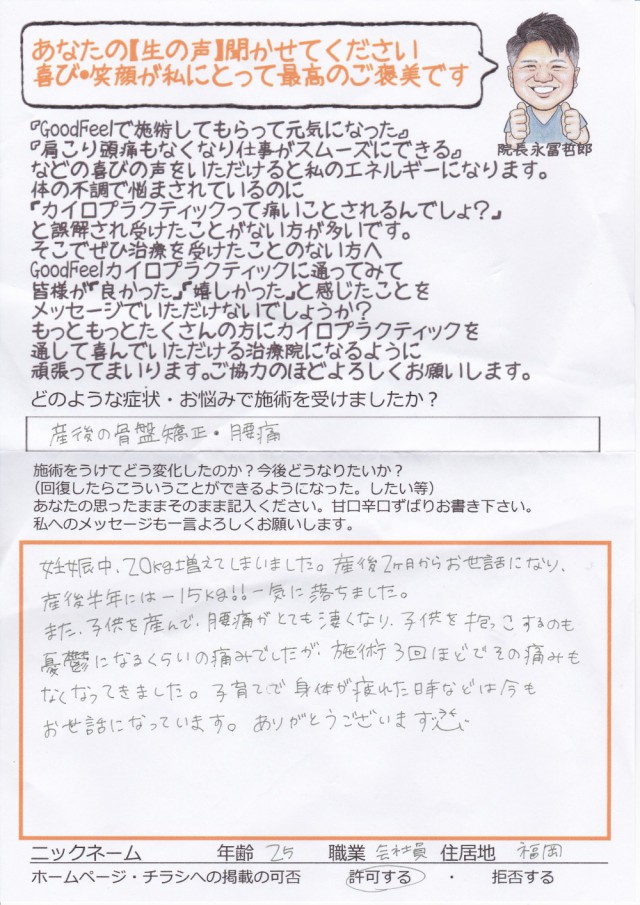 あなたの【生の声】聞かせてください
喜び・笑顔が私にとって最高のご褒美です
院長 永冨哲郎
『GoodFeelで施術してもらって元気になった』
『肩こり頭痛もなくなり仕事がスムーズにできる』
などの喜びの声をいただけると私のエネルギーになります。
体の不調で悩まされているのに
「カイロプラクティックって痛いことされるんでしょ？」
と誤解され受けたことがない方が多いです。
そこでぜひ治療を受けたことのない方へ
GoodFeelカイロプラクティックに通ってみて
皆様が「良かった」「嬉しかった」と感じたことを
メッセージでいただけないでしょうか？
もっともっとたくさんの方にカイロプラクティックを
通して喜んでいただける治療院になるように
頑張ってまいります。ご協力のほどよろしくお願いします。
どのような症状・お悩みで施術を受けましたか？
産後の骨盤矯正・腰痛
施術をうけてどう変化したのか？今後どうなりたいか？
（回復したらこういうことができるようになった。したい等）
あなたの思ったままそのまま記入ください。甘口辛口ずばりお書き下さい。
私へのメッセージも一言よろしくお願いします。
妊娠中、20kg増えてしまいました。産後2ヶ月からお世話になり、
産後半年には−15kg!!一気に落ちました。
また、子供を産んで、腰痛がとても凄くなり、子供を抱っこするのも
憂鬱になるくらいの痛みでしたが、施術3回ほどでその痛みも
なくなってきました。子育てで身体が疲れた日時などは今も
お世話になっています。ありがとうございます
ニックネーム 年齢 25 職業 会社員 住居地 福岡
ホームページ・チラシへの掲載の可否 許可する ・ 拒否する